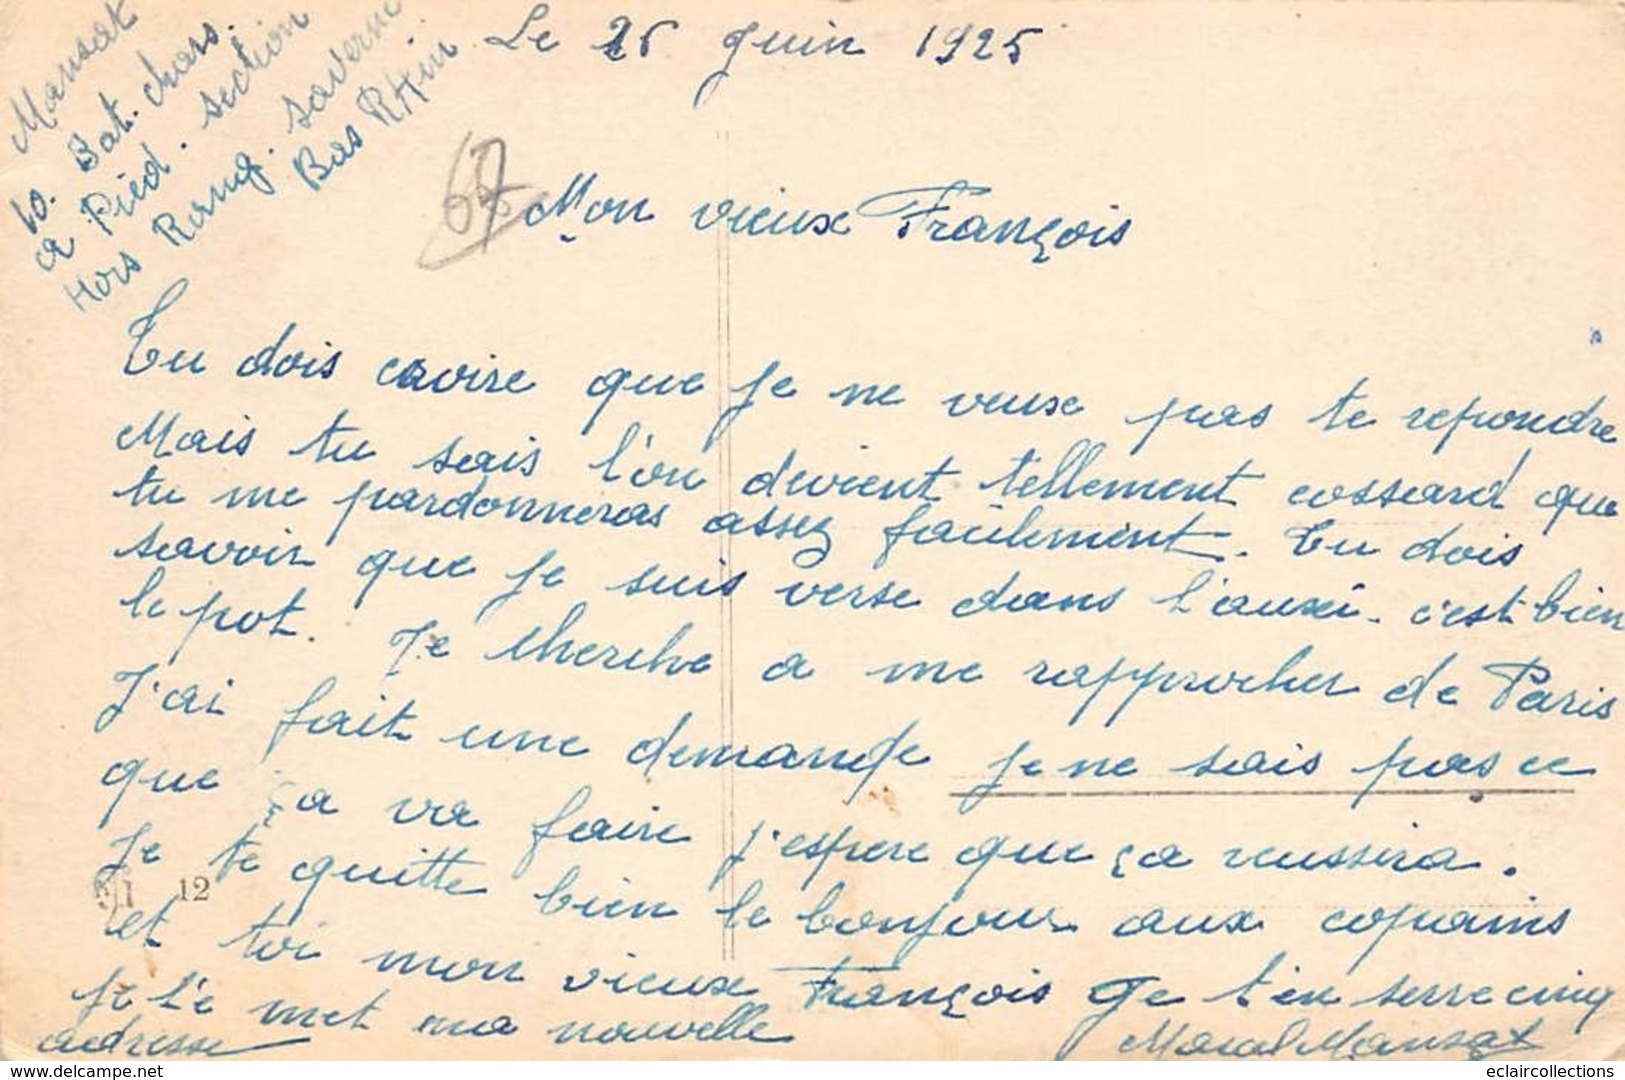 Mansat
10. Bat. chas.
a Pied. section
Hors Rang. Saverne
Bas RHin
Le 26 Juin 1925
67
Mon vieux François
Tu dois cavoire que je ne veux pas te repondre
Mais tu sais l'on devient tellement cossard que
tu me pardonneras assez facilement. Tu dois
savoir que je suis verse dans l'auxi. c'est bien
le pot. Je cherche a me rapprocher de Paris
J'ai fait une demande je ne sais pas ce
que ça va faire j'espere que ça reussira.
Je te quitte bien le bonjour aux copains
12
et toi mon vieux François Je t'en serre cinq
je t'e met ma nouvelle
adresse
Marcel Mansat
www.delcampe.net
eclaircollections